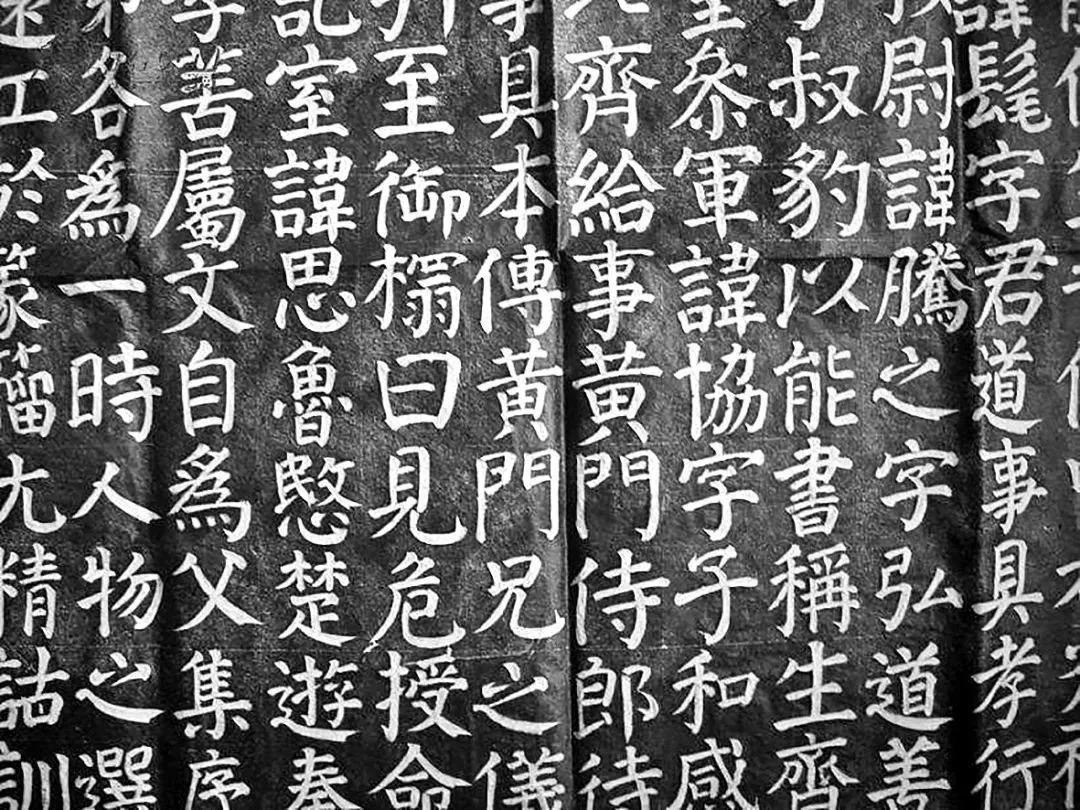 諱髦字君道事具孝行
尉諱騰之字弘道善
叔豹以能書稱生齊
叅軍諱協字子和感
齊給事黃門侍郎待
事具本傳黃門兄之儀
至御榻曰見危授命
記室諱思魯愍楚遊秦
善屬文自爲父集序
各爲一時人物之選
工於篆籀尤精詁訓